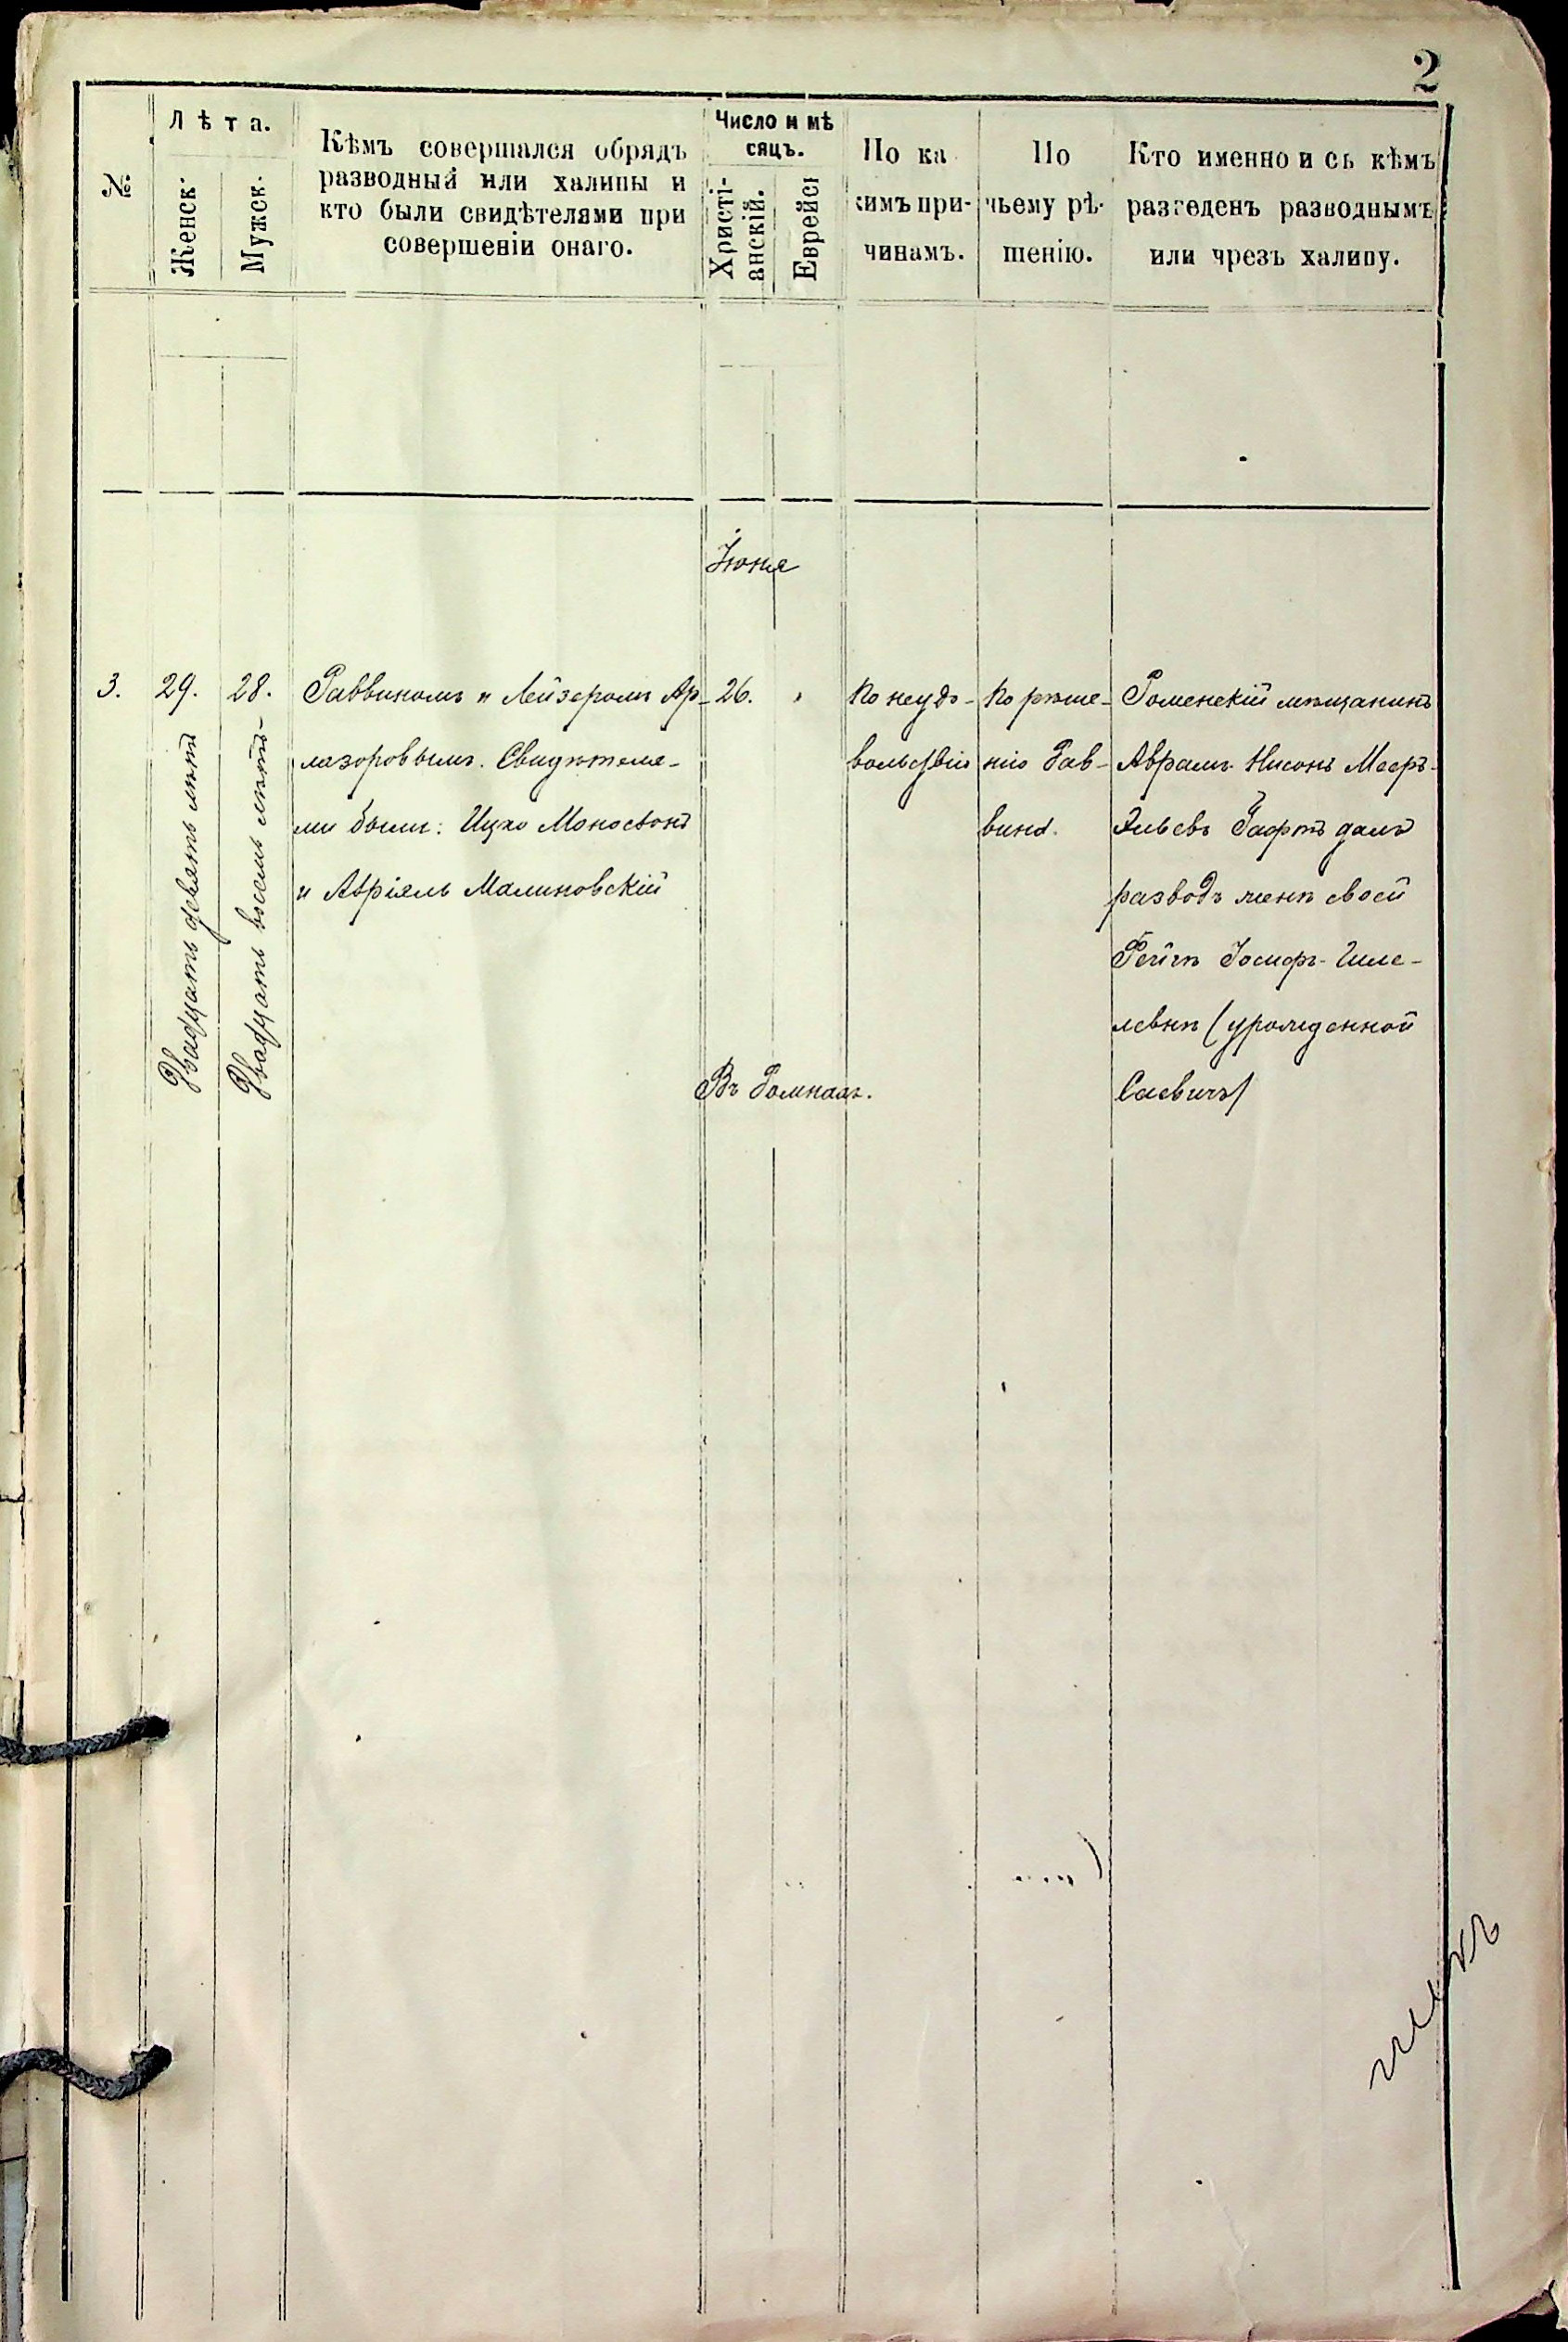 2
№.
Лѣта.
Женск.
Мужск.
Кѣмъ совершался обрядъ
разводный или халицы и
кто были свидѣтелями при
совершеніи онаго.
Число и мѣ
сяцъ.
Христі-
анскій.
Еврейск
По ка
кимъ при-
чинамъ.
По
чьему рѣ-
шенію.
Кто именно и съ кѣмъ
разведенъ разводнымъ
или чрезъ халицу.
Іюня
3.
29.
Двадцать девять лѣтъ
28.
Двадцать восемь лѣтъ
Раввиномъ и Лейзеромъ Ар-
лазоровымъ. Свидѣтеля-
ми были: Ицко Моносзонъ
и Авріяль Малиновскій
26.
Въ Ромнахъ.
По неудо-
вольствію
По рѣше-
нію Рав-
вина.
Роменскій мѣщанинъ
Аврамъ-Нисонъ Мееръ-
Эльевъ далъ
разводъ женѣ своей
Рейзѣ Іосифъ-
левнѣ (урожденной